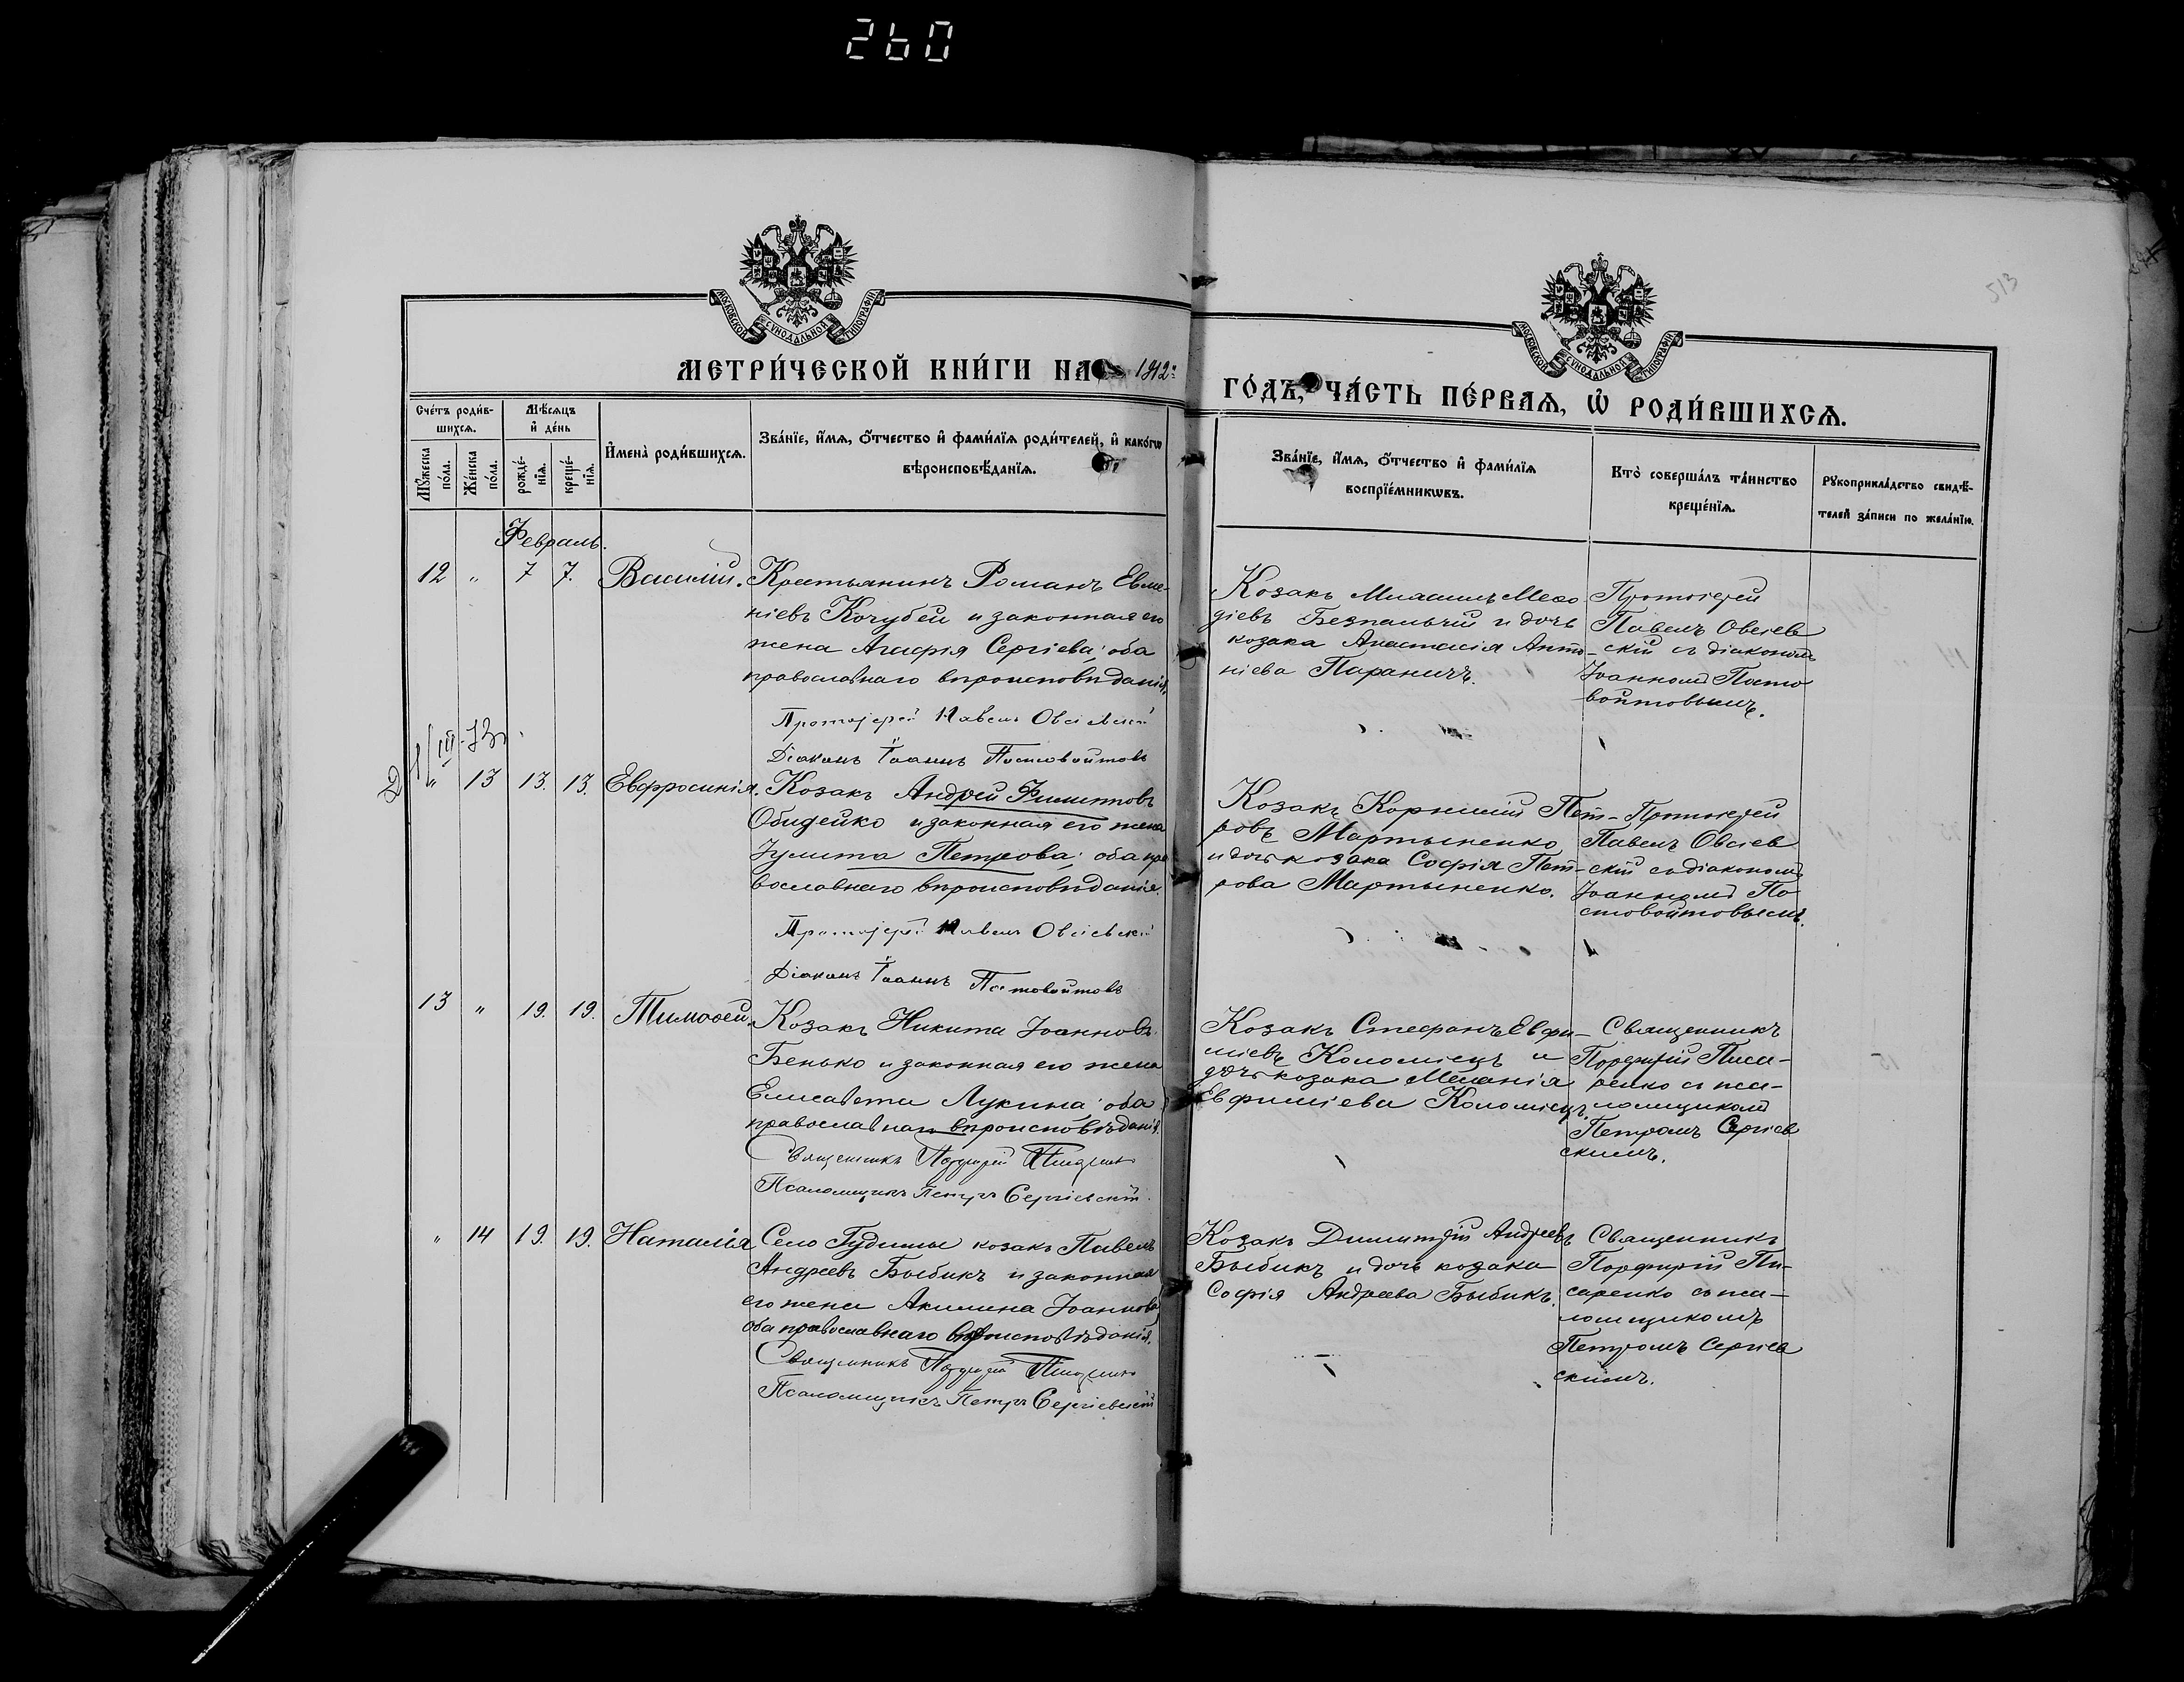 260
513
МОСКОВСКОЙ СѴНОДАЛЬНОЙ ТИПОГРАФІИ
МОСКОВСКОЙ СѴНОДАЛЬНОЙ ТИПОГРАФІИ
МЕТРИ́ЧЕСКОЙ КНИ́ГИ НА 1912
ГО́ДЪ, ЧА́СТЬ ПЕ́РВАѦ, Ѽ РОДИ́ВШИХСѦ.
Сче́тъ роди́в-
шихсѧ.
Мѣ́сѧцъ
и҆ де́нь
Мꙋ́жеска
по́ла.
Же́нска
по́ла.
рожде́-
нїѧ.
креще́-
нїѧ.
И҆мена̀ роди́вшихсѧ.
Зва́нїе, и҆́мѧ, ѻ҆́тчество и҆ фами́лїѧ роди́телей, и҆ како́гѡ
вѣроисповѣ́данїѧ.
Зва́нїе, и҆́мѧ, ѻ҆́тчество и҆ фами́лїѧ
воспрїе́мникѡвъ.
Кто̀ соверша́лъ та́инство
креще́нїѧ.
Рꙋкоприкла́дство свидѣ́-
телей за́писи по жела́нїю.
Февраль.
12 " 7 7. Василій. Крестьянинъ Романъ Евме-
ніевъ Кочубей и законная его
жена Агафія Сергіева; оба
православнаго вѣроисповѣданія.
Протоіерей Павелъ Овсіевскій
Діаконъ Іоаннъ Постовойтовъ
Козакъ Михаилъ Меѳо
діевъ Безпалый и дочь
козака Анастасія Анто-
ніева Параничъ.
Протоіерей
Павелъ Овсіев
скій съ діаконом
Іоанномъ Посто
войтовымъ.
" 13 13. 13. Евфросинія. Козакъ Андрей Филиповъ
Обидейко и законная его жена
Іулита Петрова; оба пра
вославнаго вѣроисповѣданія.
Протоіерей Павелъ Овсіевскій
Діаконъ Іоаннъ Постовойтовъ
Козакъ Корнилій Пет-
ровъ Мартыненко
и дочь козака Софія Пет-
рова Мартыненко.
Протоіерей
Павелъ Овсіев
скій съ діакономъ
Іоанномъ По
стовойтовымъ.
13 " 19. 19. Тимоѳей. Козакъ Никита Іоанновъ
Бенько и законная его жена
Елисавета Лукина; оба
православнаго вѣроисповѣданія.
Священникъ Порфирій Писаренко
Псаломщикъ Петръ Сергіевскій.
Козакъ Стефанъ Евфи-
міевъ Коломіецъ и
дочь козака Меланія
Евфиміева Коломіецъ.
Священникъ
Порфирій Писа-
ренко съ пса-
ломщикомъ
Петромъ Сергіев
скимъ.
" 14 19. 19. Наталія Село Гудимы козакъ Павелъ
Андреевъ Бибикъ и законная
его жена Акилина Іоаннова
оба православнаго вѣроисповѣданія.
Священникъ Порфирій Писаренко
Псаломщикъ Петръ Сергіевскій
Козакъ Димитрій Андреевъ
Бибикъ и дочь козака
Софія Андреева Бибикъ.
Священникъ
Порфирій Пи-
саренко съ пса-
ломщикомъ
Петромъ Сергіев
скимъ.